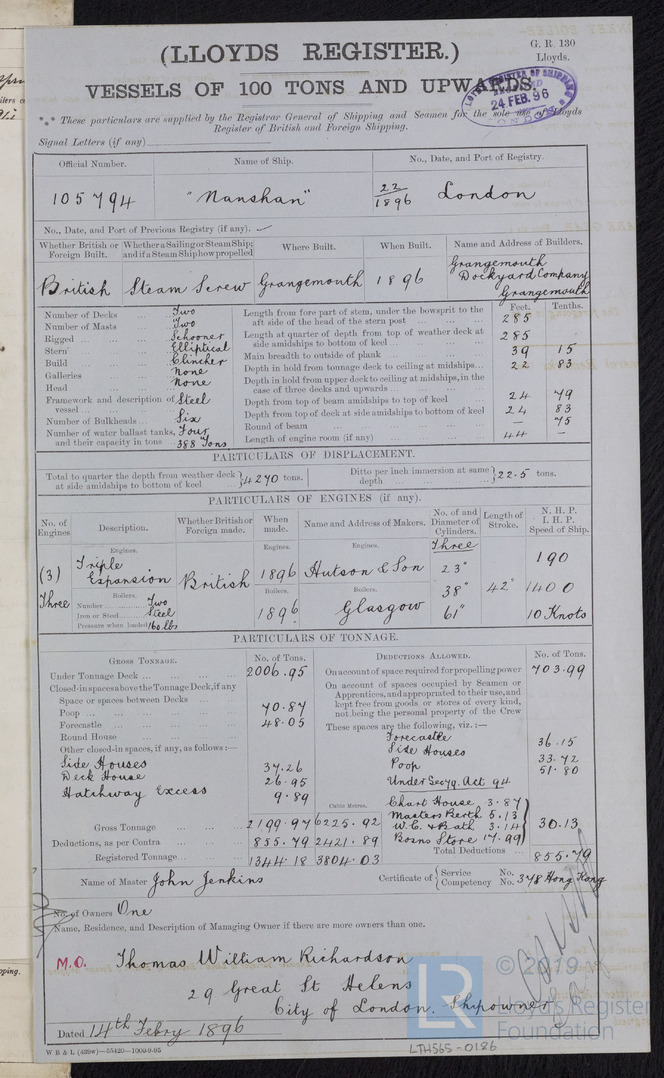 (LLOYDS REGISTER.)
G. R. 130
Lloyds.
VESSELS OF 100 TONS AND UPWARDS.
LLOYD'S REGISTER OF SHIPPING
24 FEB. 96
LONDON
These particulars are supplied by the Registrar General of Shipping and Seamen for the sole use of Lloyds
Register of British and Foreign Shipping.
Signal Letters (if any)
Official Number. Name of Ship. No., Date, and Port of Registry.
105794 "Nanshan" 22/1896 London
No., Date, and Port of Previous Registry (if any).
Whether British or Foreign Built. Whether a Sailing or Steam Ship; and if a Steam Ship how propelled Where Built. When Built. Name and Address of Builders.
British Steam Screw Grangemouth 1896 Grangemouth Dockyard Company Grangemouth
Feet. Tenths.
Number of Decks Two
Number of Masts Two
Rigged Schooner
Stern Elliptical
Build Clincher
Galleries None
Head None
Framework and description of vessel Steel
Number of Bulkheads Six
Number of water ballast tanks, and their capacity in tons Four 388 Tons
Length from fore part of stem, under the bowsprit to the aft side of the head of the stern post 285
Length at quarter of depth from top of weather deck at side amidships to bottom of keel 285
Main breadth to outside of plank 39 15
Depth in hold from tonnage deck to ceiling at midships 22 83
Depth in hold from upper deck to ceiling at midships, in the case of three decks and upwards
Depth from top of beam amidships to top of keel 24 79
Depth from top of deck at side amidships to bottom of keel 24 83
Round of beam — 75
Length of engine room (if any) 44 —
PARTICULARS OF DISPLACEMENT.
Total to quarter the depth from weather deck at side amidships to bottom of keel 4270 tons. Ditto per inch immersion at same depth 22.5 tons.
PARTICULARS OF ENGINES (if any).
No. of Engines Description. Whether British or Foreign made. When made. Name and Address of Makers. No. of and Diameter of Cylinders. Length of Stroke. N. H. P. I. H. P. Speed of Ship.
Engines. Engines. Engines. Three
(3) Triple Expansion British 1896 Hutson & Son 23" 190
Three Boilers. Boilers. Boilers. 38" 42" 1400
Number Two
Iron or Steel Steel 1896 Glasgow 61" 10 Knots
Pressure when loaded 160 lbs
PARTICULARS OF TONNAGE.
GROSS TONNAGE. No. of Tons. DEDUCTIONS ALLOWED. No. of Tons.
Under Tonnage Deck 2006.95
Closed-in spaces above the Tonnage Deck, if any
Space or spaces between Decks
Poop 70.87
Forecastle 48.05
Round House
Other closed-in spaces, if any, as follows:—
Side Houses 37.26
Deck House 26.95
Hatchway Excess 9.89
Cubic Metres.
Gross Tonnage 2199.97 6225.92
Deductions, as per Contra 855.79 2421.89
Registered Tonnage 1344.18 3804.03
On account of space required for propelling power 703.99
On account of spaces occupied by Seamen or
Apprentices, and appropriated to their use, and
kept free from goods or stores of every kind,
not being the personal property of the Crew
These spaces are the following, viz.:—
Forecastle 36.15
Side Houses 33.72
Poop 51.80
Under Sec 79. Act 94
Chart House 3.87
Masters Berth 5.13
W.C. & Bath 3.14
Bosns Store 17.99
30.13
Total Deductions 855.79
Name of Master John Jenkins Certificate of Service Competency No. No. 348 Hong Kong
No. of Owners One
Name, Residence, and Description of Managing Owner if there are more owners than one.
M.O. Thomas William Richardson
29 Great St Helens
City of London. Shipowner
Dated 14th Febry 1896
W B & L (439w)—55420—1000-9-95
LTH565-0186
LR
© 2019
Lloyd's Register
Foundation